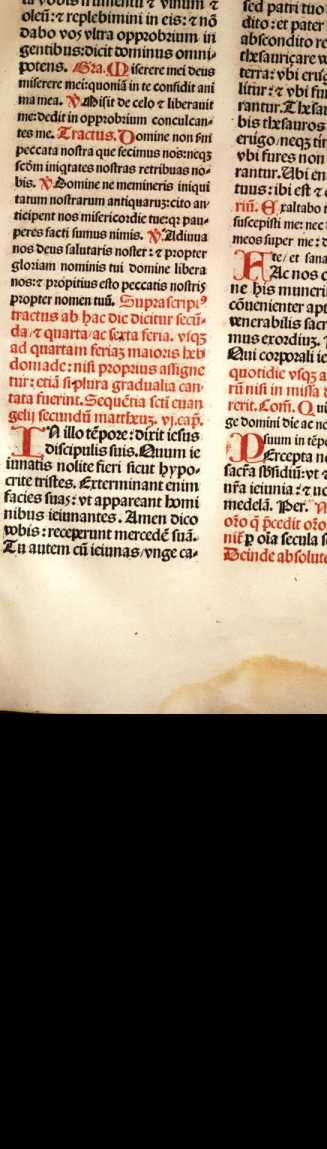 la vobis frumentū ⁊ vinum ⁊
oleū:⁊ replebimini in eis:⁊ nō
dabo vos vltra opprobrium in
gentibus:dicit dominus omni⸗
potens. Gra. Miserere mei deus
miserere mei:quoniā in te confidit ani
ma mea. ℣. Misit de celo ⁊ liberauit
me:dedit in opprobrium conculcan⸗
tes me. Tractus. Domine non ẜm
peccata nostra que fecimus nos:neqꝫ
scōm iniqtates nostras retribuas no⸗
bis. ℣. Domine ne memineris iniqui
tatum nostrarum antiquarūꝫ:cito an
ticipent nos misericordie tue:qꝛ pau⸗
peres facti sumus nimis. ℣. Adiuua
nos deus salutaris noster:⁊ propter
gloriam nominis tui domine libera
nos:⁊ propitius esto peccatis nostris
propter nomen tuū. Suprascriptꝰ
tractus ab hac die dicitur secū⸗
da/⁊ quarta/ac sexta feria. vsqꝫ
ad quartam feriaꝫ maioris heb
domade:nisi proprius assigne
tur:etiā si plura gradualia can⸗
tata fuerint. Sequētia scti euan
gelij secundū mattheuꝫ. vj.cap.
IN illo tēpore:dixit iesus
discipulis suis. Quum ie
iunatis nolite fieri sicut hypo⸗
crite tristes. Exterminant enim
facies suas:vt appareant homi
nibus ieiunantes. Amen dico
vobis:receperunt mercedē suā.
Tu autem cū ieiunas/vnge ca⸗
sed patri tuo
dito:et pater
abscondito re
thesauriçare
terra:vbi eru
litur:⁊ vbi fu
rantur. Thesa
bis thesauros
erugo/neqꝫ tin
vbi fures non
rantur. Ubi en
tuus:ibi est ⁊
riū. Exaltabo t
suscepisti me: nec
meos super me: d
te/ et sana
Ac nos
ne his muneri
cōuenienter apt
venerabilis sacr
mus exordiuꝫ.
Qui corporali ie
quotidie vsqꝫ a
rū nisi in missa d
rerit. Com̄. Qui
ge domini die ac no
Psuum in tēpo
Ercepta no
sacra ßsidiū:vt
nr̄a ieiunia:⁊ no
medelā. Per.
oro q̄ p̄cedit oro
nit̄ ꝑ oīa secula s
Deinde absolute